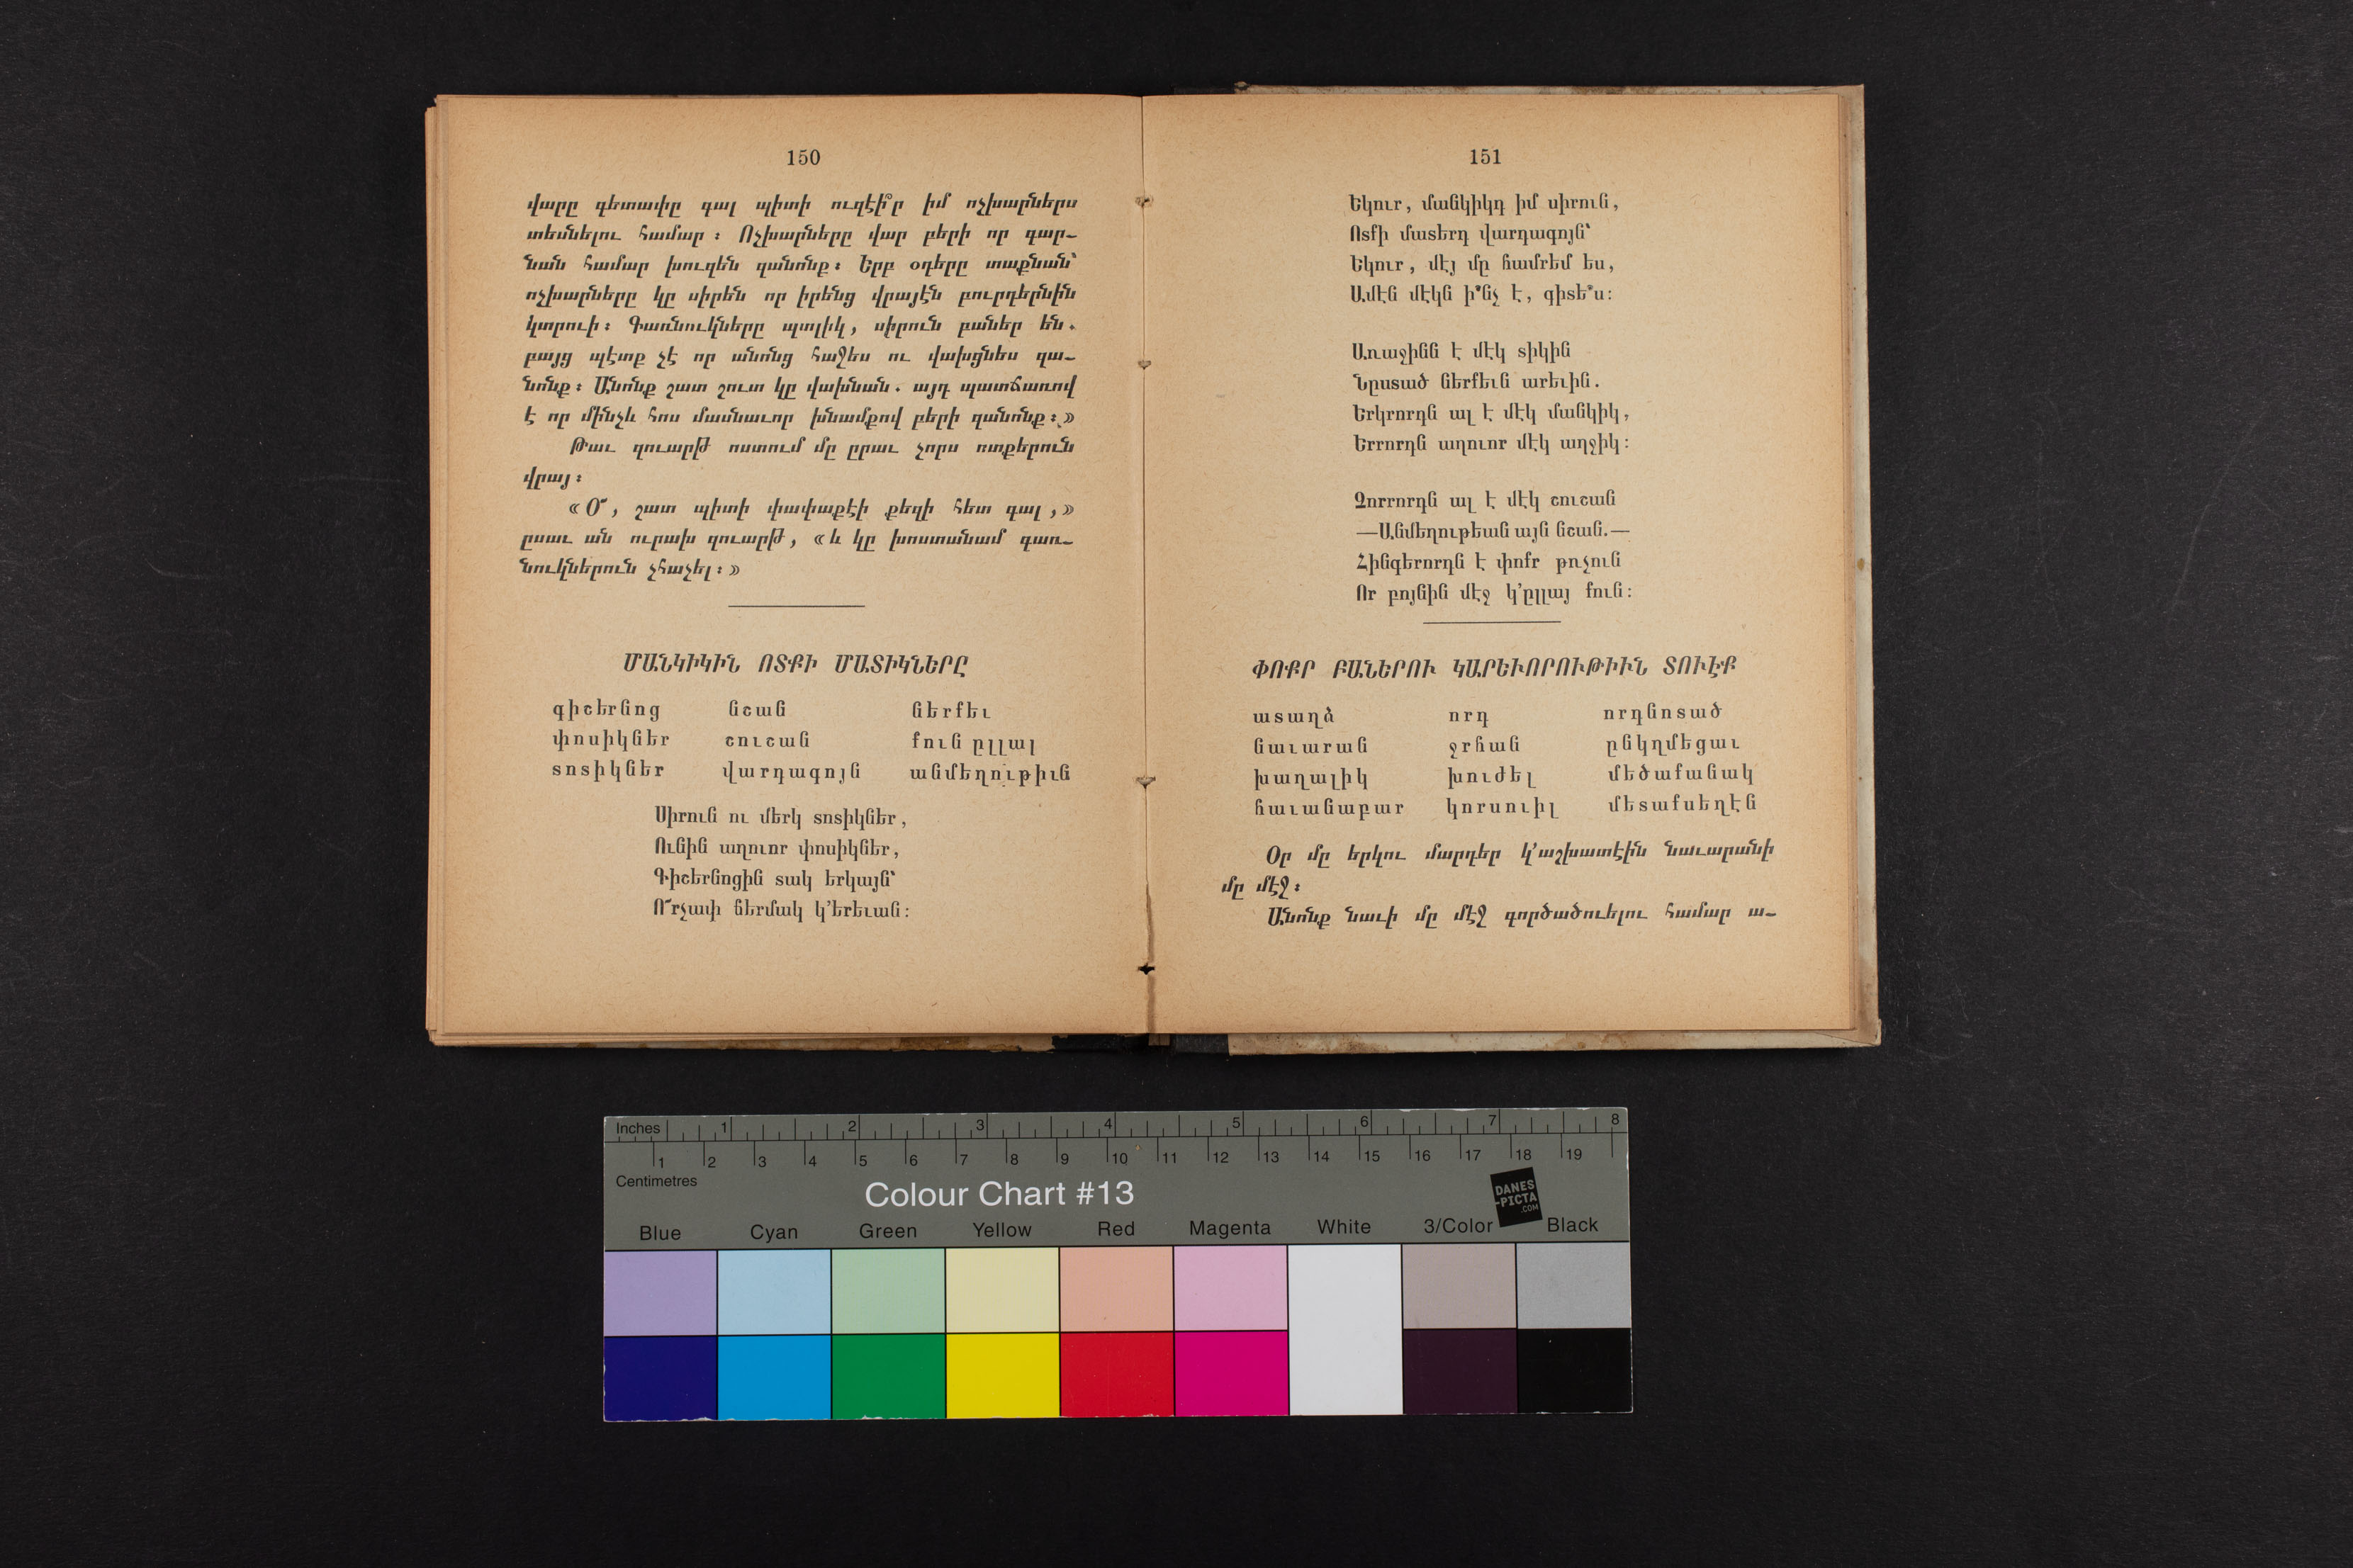 150
վարը գետափը գալ պիտի ուզէի՞ր իմ ոչխարներս
տեսնելու համար։ Ոչխարները վար բերի որ գար-
նան համար խուզեն զանոնք։ Երբ օդերը տաքնան՝
ոչխարները կը սիրեն որ իրենց վրայէն բուրդերնին
կտրուի։ Գառնուկները պտլիկ, սիրուն բաներ են.
բայց պէտք չէ որ անոնց հաջես ու վախցնես զա-
նոնք։ Անոնք շատ շուտ կը վախնան. այդ պատճառով
է որ մինչև հոս մասնաւոր խնամքով բերի զանոնք։»
Թաւ զուարթ ոստում մը ըրաւ չորս ոտքերուն
վրայ։
«Օ՜, շատ պիտի փափաքէի քեզի հետ գալ,»
ըսաւ ան ուրախ զուարթ, «և կը խոստանամ գառ-
նուկներուն չհաչել։»
ՄԱՆԿԻԿԻՆ ՈՏՔԻ ՄԱՏԻԿՆԵՐԸ
գիշերնոց նշան ներքեւ
փոսիկներ շուշան քուն ըլլալ
տոտիկներ վարդագոյն անմեղութիւն
Սիրուն ու մերկ տոտիկներ,
Ունին աղուոր փոսիկներ,
Գիշերնոցին տակ երկայն՝
Ո՜րչափ ճերմակ կ'երեւան։
151
Եկուր, մանկիկդ իմ սիրուն,
Ոտքի մատերդ վարդագոյն՝
Եկուր, մէյ մը համրեմ ես,
Ամէն մէկն ի՞նչ է, գիտե՞ս։
Առաջինն է մէկ տիկին
Նըստած ներքեւն արեւին.
Երկրորդն ալ է մէկ մանկիկ,
Երրորդն աղուոր մէկ աղջիկ։
Չորրորդն ալ է մէկ շուշան
—Անմեղութեան այն նշան.—
Հինգերորդն է փոքր թռչուն
Որ բոյնին մէջ կ'ըլլայ քուն։
ՓՈՔՐ ԲԱՆԵՐՈՒ ԿԱՐԵՒՈՐՈՒԹԻՒՆ ՏՈՒԷՔ
ատաղձ որդ որդնոտած
նաւարան ջրհան ընկղմեցաւ
խաղալիկ խուժել մեծաքանակ
հաւանաբար կորսուիլ մետաքսեղէն
Օր մը երկու մարդեր կ'աշխատէին նաւարանի
մը մէջ։
Անոնք նաւի մը մէջ գործածուելու համար ա-
Inches 1 2 3 4 5 6 7 8
1 2 3 4 5 6 7 8 9 10 11 12 13 14 15 16 17 18 19
Centimetres
Colour Chart #13
DANES
-PICTA
.COM
Blue Cyan Green Yellow Red Magenta White 3/Color Black